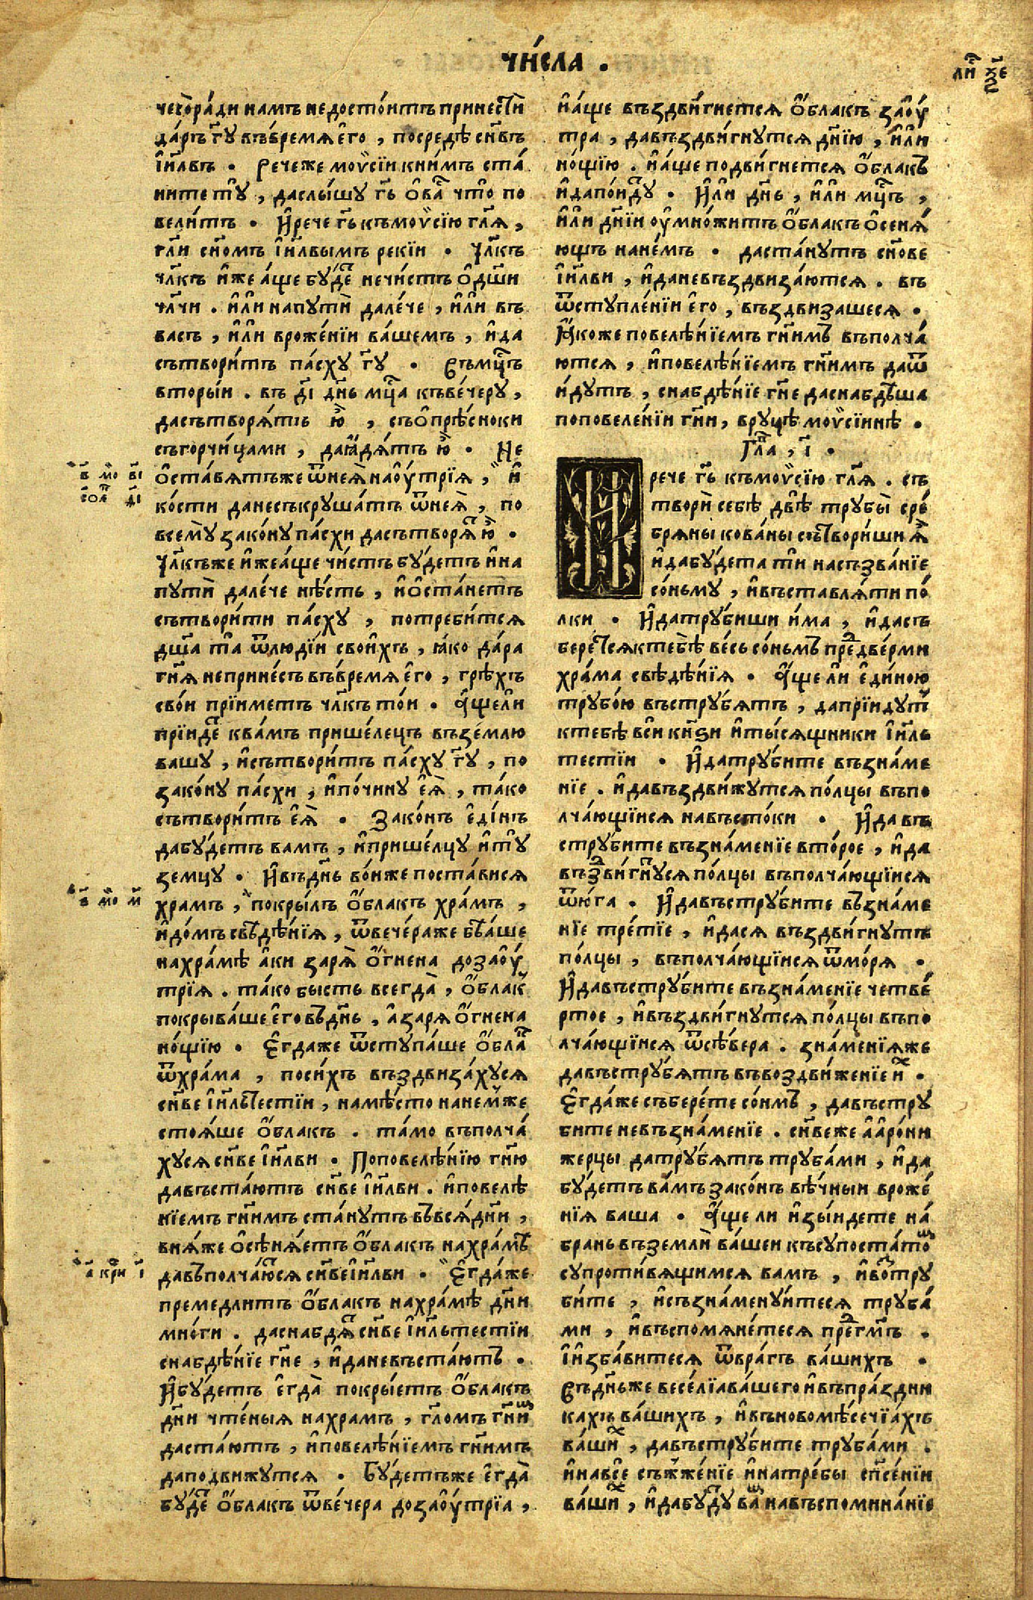 чи́сла .
ли̑ ѯ҃е
чесо̀ра́ди намъ недосто́итъ принестѝ
да́ръ гу҃ въвре́мя є҆го̀ , посредѣ̀ сн҃въ
і҆и҃лвъ . Рече́же моѵ̈сі́и кни́мъ ста́
ните тꙋ̀ , даслы́шꙋ гь҃ ѡ҆ва́ что̀ по
вели́тъ . И҆речѐ гь҃ къмоѵ̈сі́ю гл҃я ,
гл҃и сн҃омъ і҆и҃лвымъ рекі́и . Чл҃къ
чл҃къ и҆́же а́ще бꙋ́де нечи́стъ ѡ҆дш҃и
чл҃чи . и҆лѝ напꙋтѝ дале́че , и҆лѝ въ
васъ , и҆лѝ вроже́нїи ва́шемъ , и҆да
сътвори́тъ па́схꙋ гꙋ҃ . Въмц҃ъ
вторы́и . въ д҃і дн҃ь мц҃а къве́черꙋ ,
дасътворя́тъ ю҆̀ , съѡ҆прѣ́сноки
съгорчи́цами , даꙗ҆дя́тъ ю҆̀ . Не
ѡ҆ста́вятъже ѿнея̀ наѹ҆́трїя , и҆
ко́сти данесъкрꙋша́тъ ѿнея̀ , по
всемꙋ̀ зако́нꙋ па́схи дасътворя́ ю҆̀ .
Чл҃къже и҆́же а́ще чи́стъ бꙋ́детъ и҆на
пꙋтѝ дале́че нѣ́сть , и҆ѡ҆ста́нетъ
сътвори́ти па́схꙋ , потреби́тся
дш҃а та̀ ѿлюді́и свои́хъ , ꙗ҆́ко да́ра
гн҃я непринесъ̀ въвре́мя є҆го̀ , грѣ́хъ
сво́и прїи́метъ чл҃къ то́и . А҆́щели
прїи́де ква́мъ прише́лецъ въземлю
вашꙋ , и҆сътвори́тъ па́схꙋ гꙋ҃ , по
зако́нꙋ па́схи , и҆почи́нꙋ є҆я̀ , та́ко
сътвори́тъ є҆я̀ . Зако́нъ є҆ди́нъ
дабꙋ́детъ вамъ , и҆прише́лцꙋ и҆тꙋ
земцꙋ . И҆въдн҃ь во́ньже поста́вися
хра́мъ , покры́лъ ѡ҆́блакъ хра́мъ ,
и҆до́мъ свѣдѣ́нїя , ѿве́чераже бы́ваше
нахра́мѣ а҆ки заря̀ ѻ҆́гнена дозаѹ҆́
трїя . та́ко бысть всегда̀ , ѡ҆́блак
покрыва́ше є҆го̀ въдн҃ь , а҆заря̀ ѻ҆́гнена
но́щїю . Є҆гда́же ѿстꙋпа́ше ѡ҆́бла
ѿхра́ма , поси́хъ въздвиза́хꙋся
сн҃ве і҆и҃льтестїи , намѣ́сто нане́мже
стоя́ше ѡ҆́блакъ . та́мо въполча́
хꙋся сн҃ве і҆и҃лви . Поповелѣ́нїю гн҃ю
давъста́ютъ сн҃ве і҆и҃лви . и҆повелѣ́
нїемъ гн҃имъ ста́нꙋтъ въвся̀ дн҃и ,
вня́же ѡ҆сѣня́етъ ѡ҆́блакъ нахра́мъ
давъполча́ются сн҃ве і҆и҃лви . Є҆гда́же
премедли́тъ ѡ҆́блакъ нахра́мѣ дн҃и
мно́ги . даснабдя́ сн҃ве і҆и҃льтестїи
снабдѣ́нїе гн҃е , и҆даневъста́ютъ .
И҆бꙋ́детъ є҆гда̀ покры́етъ ѡ҆́блакъ
дн҃и чте́ныя нахра́мъ , гл҃омъ гн҃и
даста́ютъ , и҆повелѣ́нїемъ гн҃имъ
даподви́жꙋтся . Бꙋ́детъже є҆гда̀
бꙋ́де ѡ҆́блакъ ѿве́чера дозаѹ҆́трїа ,
в҃ мо в҃і
є҃оа д҃і
в҃ мо м҃
а҃ кри і҃
и҆а́ще въздви́гнется ѡ҆́блакъ заѹ҆́
тра , давъздви́гнꙋтся дн҃їю , и҆лѝ
но́щїю . и҆а́ще подви́гнется ѡ҆́блакъ
и҆дапо́идꙋ . И҆лѝ дн҃ь , и҆лѝ мц҃ъ ,
и҆лѝ дн҃їи ѹ҆мно́житъ ѡ҆́блакъ ѡ҆сеня́
ющъ нане́мъ . даста́нꙋтъ сн҃ове
і҆и҃лви , и҆даневъздвиза́ются . въ
ѿстꙋпле́нїи є҆го̀ , въздвиза́шеся .
Ꙗ҆́коже повелѣ́нїемъ гн҃имъ въполча́
ются , и҆повелѣ́нїемъ гн҃имъ даѿ
и́дꙋтъ , снабдѣ́нїе гн҃е даснабдѣ́ша
поповеленїи гн҃и , врꙋцѣ̀ моѵ̈сі́инѣ .
Гла , і҃ .
И речѐ гь҃ къмоѵ̈сі́ю гл҃я . съ
творѝ себѣ̀ двѣ̀ трꙋбы̀ сре́
бряны кова́ны сътвори́ши я҆̀
и҆дабꙋ́дета тѝ насъзва́нїе
со́ньмꙋ , и҆въставля́ти по
лки . И҆датрꙋ́биши и́ма , и҆дасъ
бере́тся ктебѣ̀ ве́сь со́ньмъ пре́две́рми
хра́ма свѣдѣ́нїя . А҆́ще лѝ є҆ди́ною
трꙋбо́ю въстрꙋ́бятъ , дапрїи́дꙋт
ктебѣ̀ всѝ кн҃ѕи и҆ты́сящники і҆и҃ль
тестїи . И҆датрꙋ́бите възна́ме
нїе . и҆давъздви́жꙋтся по́лцы въпо
лча́ющїися навъсто́ки . И҆да въ
стрꙋ́бите възна́менїе второ́е , и҆да
въздви́гнꙋся по́лцы въполча́ющїися
ѿю́га . И҆давъстрꙋ́бите възна́ме
нїе тре́тїе , и҆дася въздви́гнꙋтъ
по́лцы , въполча́ющїися ѿмо́ря .
И҆давъстрꙋ́бите възна́менїе четве́
ртое , и҆въздви́гнꙋтся по́лцы въпо
лча́ющїися ѿсѣ́вера . зна́менїяже
давъстрꙋ́бятъ въвоздви́женїе и҆х .
Є҆гда́же съберете со́нмъ , давъстрꙋ́
бите невъзна́менїе . сн҃веже а҆арони
жерцы̀ датрꙋ́бятъ трꙋба́ми , и҆да
бꙋ́детъ ва́мъ зако́нъ вѣ́чныи вроже́
нїя ваша . А҆́ще ли и҆зы́идете на́
бра́нь въземлѝ ва́шеи късꙋпоста́то
сꙋпроти́вящимся вамъ , и҆вотрꙋ́
бите , и҆съзна́менꙋитеся трꙋба́
ми , и҆въспомяне́теся предгм҃ъ .
І҆избавитеся ѿвра́гъ ва́шихъ .
Въдньже весе́лїа ва́шего и҆въпра́здни
кахъ ва́шихъ , и҆въновомѣ́сечїахъ
ва́ших , давъстрꙋ́бите трꙋба́ми .
и҆навсе съжже́нїе и҆натре́бы сп҃се́нїи
ва́ших , и҆дабꙋ́дꙋ ва навъспомина́нїе